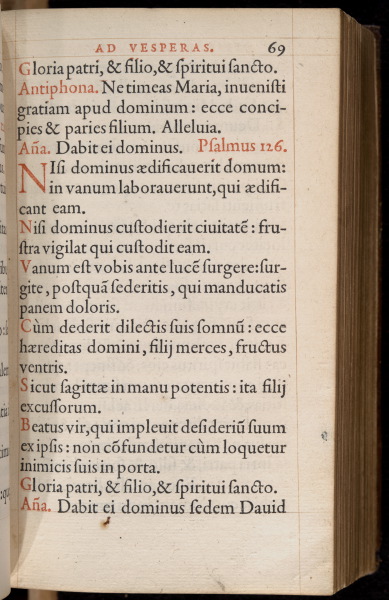 AD VESPERAS. 69
Gloria patri, & filio, & ſpiritui ſancto.
Antiphona. Ne timeas Maria, inueniſti
gratiam apud dominum : ecce conci-
pies & paries filium. Alleluia.
Aña. Dabit ei dominus. Pſalmus 126.
NIſi dominus ædificauerit domum:
in vanum laborauerunt, qui ædifi-
cant eam.
Niſi dominus cuſtodierit ciuitatē : fru-
ſtra vigilat qui cuſtodit eam.
Vanum eſt vobis ante lucē ſurgere: ſur-
gite, poſtquā ſederitis, qui manducatis
panem doloris.
Cùm dederit dilectis ſuis ſomnū : ecce
hæreditas domini, filij merces, fructus
ventris.
Sicut ſagittæ in manu potentis : ita filij
excuſſorum.
Beatus vir, qui impleuit deſideriū ſuum
ex ipſis : non cōfundetur cùm loquetur
inimicis ſuis in porta.
Gloria patri, & filio, & ſpiritui ſancto.
Aña. Dabit ei dominus ſedem Dauid